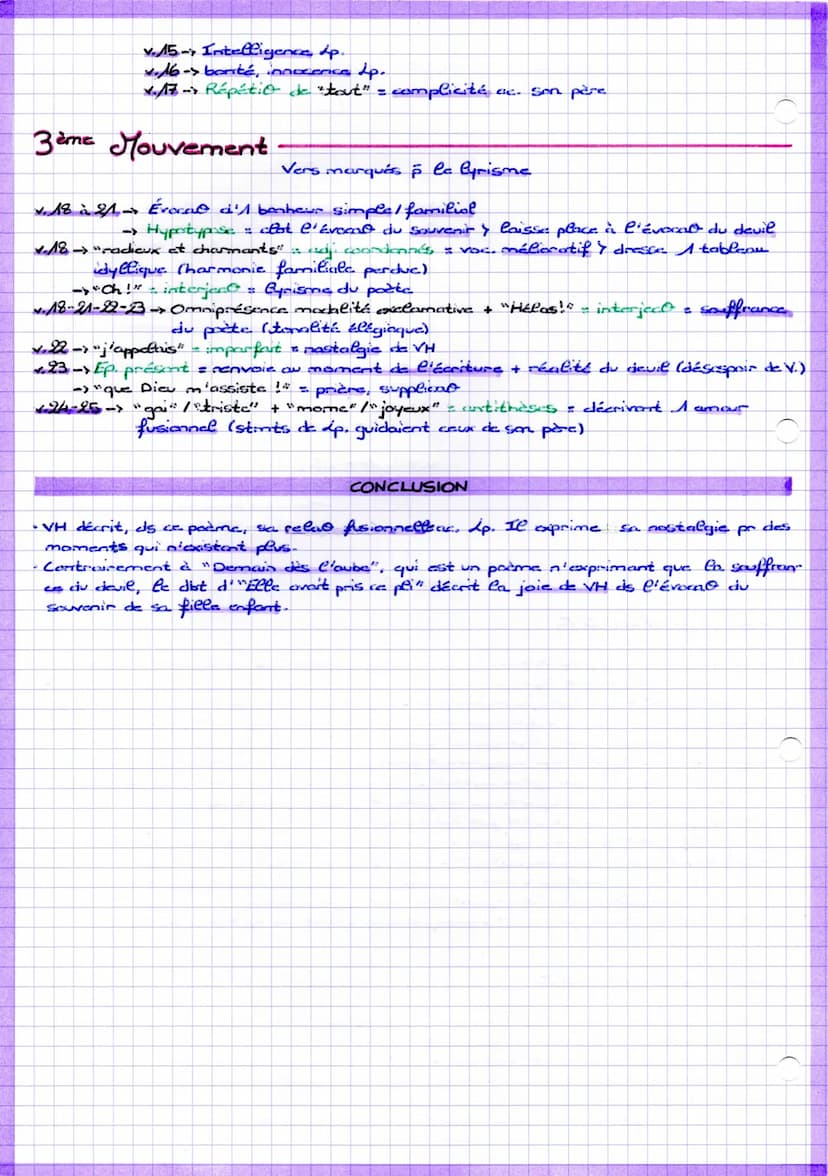 v.15 → Intelligence Lp.
v.16 → bonté, innocence Lp.
v.17 → Répétiø de "tout" = complicité ac. son père
3ème Mouvement
Vers marqués p̄ le lyrisme
v.18 à 21 → Évocaø d'1 bonheur simple/familial
→ Hypotypose = clôt l'évocaø du souvenir > laisse place à l'évocaø du deuil
v.18 → "radieux et charmants" = adj. coordonnés = voc. mélioratif > dresse 1 tableau
idyllique (harmonie familiale perdue)
→ "Oh !" = interjecø = lyrisme du poète
v.18-21-22-23 → Omniprésence modalité exclamative + "Hélas!" = interjecø = souffrance
du poète (tonalité élégiaque)
v.22 → "j'appelais" = imparfait = nostalgie de VH
v.23 → Ep. présent = renvoie au moment de l'écriture + réalité du deuil (désespoir de V.)
→ "que Dieu m'assiste !" = prière, supplicaø
v.24-25 → "gai" / "triste" + "morne" / "joyeux" = antithèses = décrivent 1 amour
fusionnel (stmts de Lp. guidaient ceux de son père)
CONCLUSION
• VH décrit, ds ce poème, sa relaø fusionnelle ac. Lp. Il exprime sa nostalgie pr des
moments qui n'existent plus.
• Contrairement à "Demain dès l'aube", qui est un poème n'exprimant que la souffran-
ce du deuil, le dbt d'"Elle avait pris ce pli" décrit la joie de VH ds l'évocaø du
souvenir de sa fille enfant.